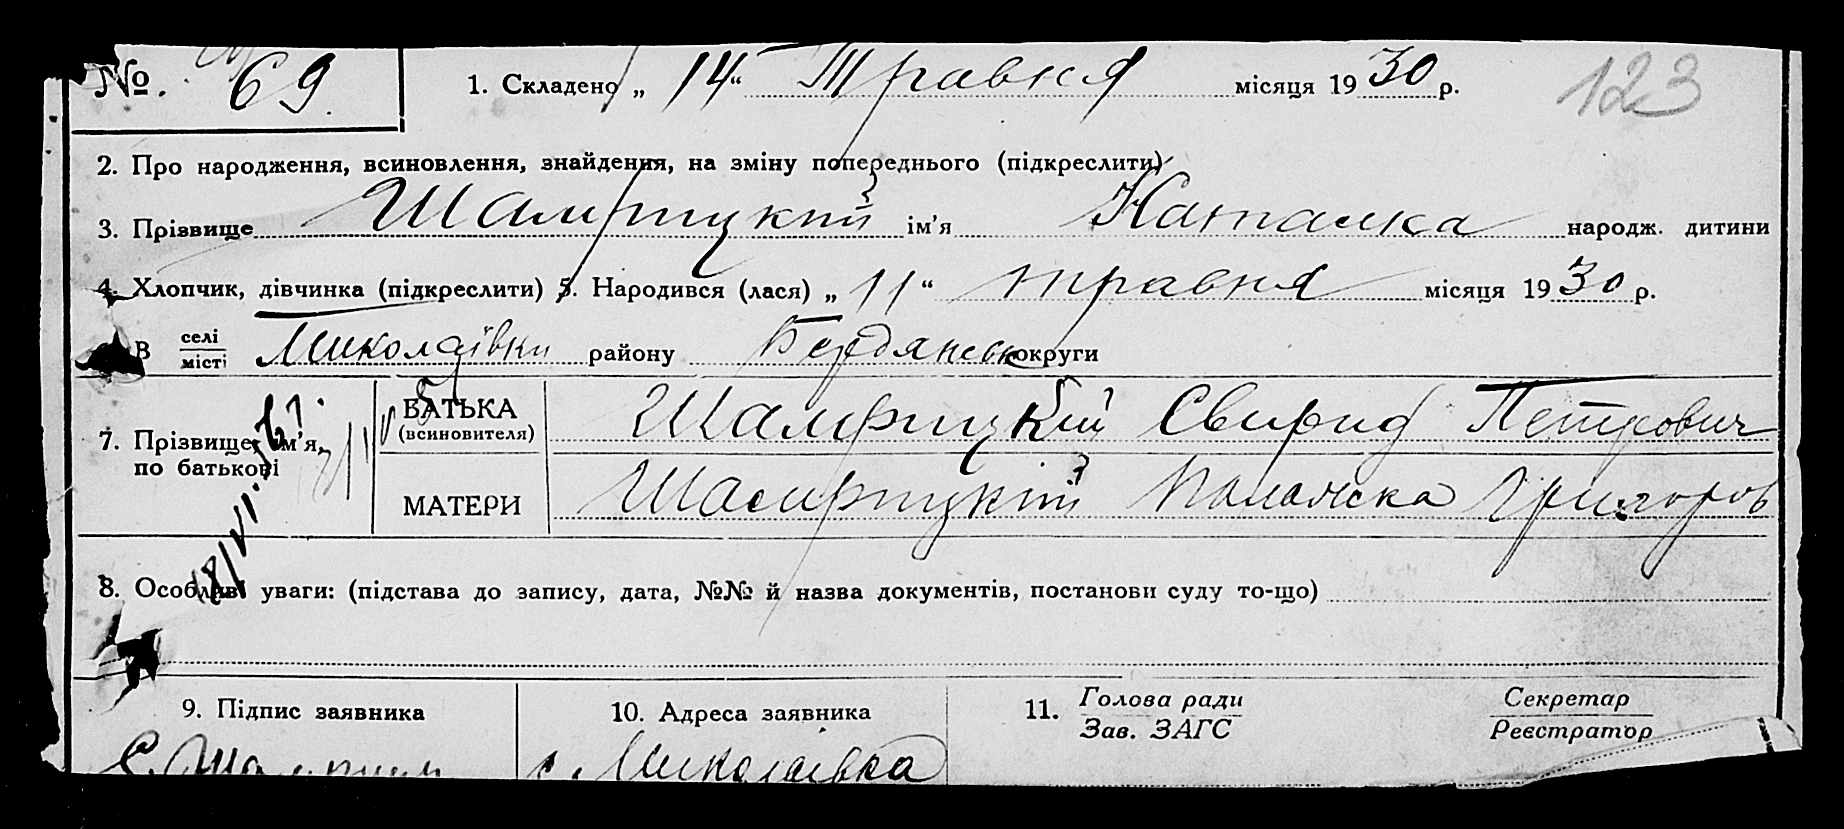 №. 69. 1. Складено „ 14 “ Травня місяця 1930 р. 123
2. Про народження, всиновлення, знайдення, на зміну попереднього (підкреслити)
3. Прізвище ім'я Наталка народж. дитини
4. Хлопчик, дівчинка (підкреслити) 5. Народився (лася) „ 11 “ травня місяця 1930 р.
В селі місті Миколаївки району Бердянськ округи
7. Прізвище, ім'я, по батькові
БАТЬКА (всиновителя) Свирид Петрович
МАТЕРИ Григоров
8. Особливі уваги: (підстава до запису, дата, №№ й назва документів, постанови суду то-що)
9. Підпис заявника 10. Адреса заявника 11. Голова ради Зав. ЗАГС Секретар Реєстратор
с. Миколаївка